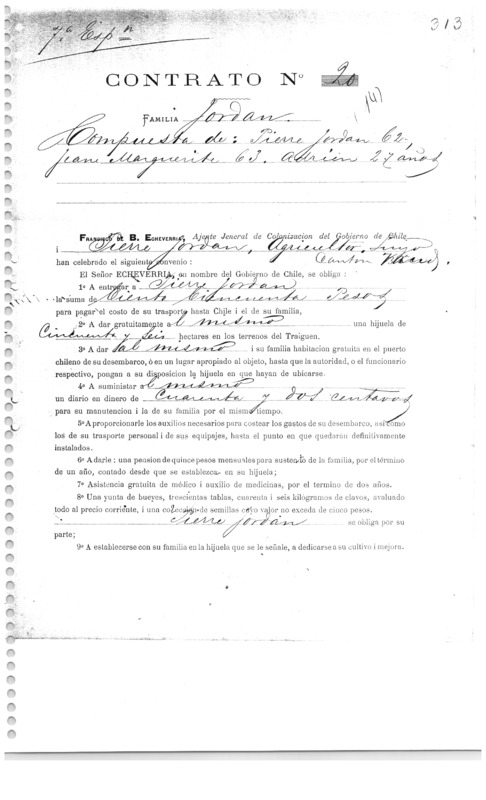 313
7.ª Espn
CONTRATO Nº 20
(4)
FAMILIA Jordan.
Compuesta de: Pierre Jordan 62,
Jean Marguerite 63. Adrien 27 años
FRANCISCO DE B. ECHEVERRIA, Ajente Jeneral de Colonizacion del Gobierno de Chile
i Pierre Jordan, Agricultor, Suizo
han celebrado el siguiente convenio: Canton Vaud.
El Señor ECHEVERRIA, en nombre del Gobierno de Chile, se obliga:
1º A entregar a Pierre Jordan
la suma de Ciento Cincuenta Pesos
para pagar el costo de su trasporte hasta Chile i el de su familia,
2º A dar gratuitamente al mismo una hijuela de
Cincuenta y Seis hectares en los terrenos del Traiguen.
3º A dar al mismo i su familia habitacion gratuita en el puerto
chileno de su desembarco, ó en un lugar apropiado al objeto, hasta que la autoridad, o el funcionario
respectivo, pongan a su disposicion la hijuela en que hayan de ubicarse.
4º A suministar al mismo
un diario en dinero de Cuarenta y dos centavos
para su manutencion i la de su familia por el mismo tiempo.
5º A proporcionarle los auxilios necesarios para costear los gastos de su desembarco, así como
los de su trasporte personal i de sus equipajes, hasta el punto en que quedarán definitivamente
instalados.
6º A darle: una pension de quince pesos mensuales para sustento de la familia, por el término
de un año, contado desde que se establezca en su hijuela;
7º Asistencia gratuita de médico i auxilio de medicinas, por el termino de dos años.
8º Una yunta de bueyes, trescientas tablas, cuarenta i seis kilógramos de clavos, avaluado
todo al precio corriente, i una colección de semillas cuyo valor no exceda de cinco pesos.
Pierre Jordan se obliga por su
parte;
9º A establecerse con su familia en la hijuela que se le señale, a dedicarse a su cultivo i mejora.